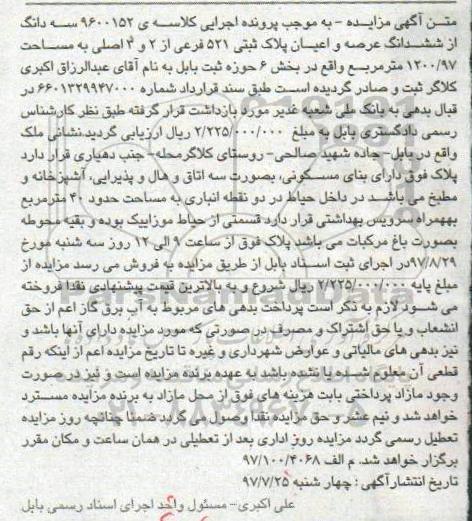 متن آگهی مزایده - به موجب پرونده اجرایی کلاسه ی ۹۶۰۰۱۵۲ سه دانگ
از ششدانگ عرصه و اعیان پلاک ثبتی ۵۲۱ فرعی از ۲ و ۳ اصلی به مساحت
۱۲۰۰/۹۷ مترمربع واقع در بخش ۶ حوزه ثبت بابل به نام آقای عبدالرزاق اکبری
کلاگر ثبت و صادر گردیده است طبق سند قرارداد شماره ۶۶۰۱۳۲۹۹۴۷۰۰۰ در
قبال بدهی به بانک ملی شعبه غدیر مورد بازداشت قرار گرفته طبق نظر کارشناس
رسمی دادگستری بابل به مبلغ ۲/۲۲۵/۰۰۰/۰۰۰ ریال ارزیابی گردید.نشانی ملک
واقع در بابل- جاده شهید صالحی- روستای کلاگرمحله- جنب دهیاری قرار دارد
پلاک فوق دارای بنای مسکونی، بصورت سه اتاق و هال و پذیرایی، آشپزخانه و
مطبخ می باشد در داخل حیاط در دو نقطه انباری به مساحت حدود ۴۰ مترمربع
بههمراه سرویس بهداشتی قرار دارد قسمتی از حیاط موزاییک بوده و بقیه محوطه
بصورت باغ مرکبات می باشد پلاک فوق از ساعت ۹ الی ۱۲ روز سه شنبه مورخ
۹۷/۸/۲۹در اجرای ثبت اسناد بابل از طریق مزایده به فروش می رسد مزایده از
مبلغ پایه ۲/۲۲۵/۰۰۰/۰۰۰ ریال شروع و به بالاترین قیمت پیشنهادی نقدا فروخته
می شود لازم به ذکر است پرداخت بدهی های مربوط به آب برق گاز اعم از حق
انشعاب و یا حق اشتراک و مصرف در صورتی که مورد مزایده دارای آنها باشد و
نیز بدهی های مالیاتی و عوارض شهرداری و غیره تا تاریخ مزایده اعم از اینکه رقم
قطعی آن معلوم شده یا نشده باشد به عهده برنده مزایده است و نیز در صورت
وجود مازاد پرداختی بابت هزینه های فوق از محل مازاد به برنده مزایده مسترد
خواهد شد و نیم عشر و حق مزایده نقدا وصول می گردد ضمنا چنانچه روز مزایده
تعطیل رسمی گردد مزایده روز اداری بعد از تعطیلی در همان ساعت و مکان مقرر
برگزار خواهد شد. م الف ۹۷/۱۰۰/۴۰۶۸
تاریخ انتشار آگهی : چهار شنبه ۹۷/۷/۲۵
علی اکبری- مسئول واحد اجرای اسناد رسمی بابل